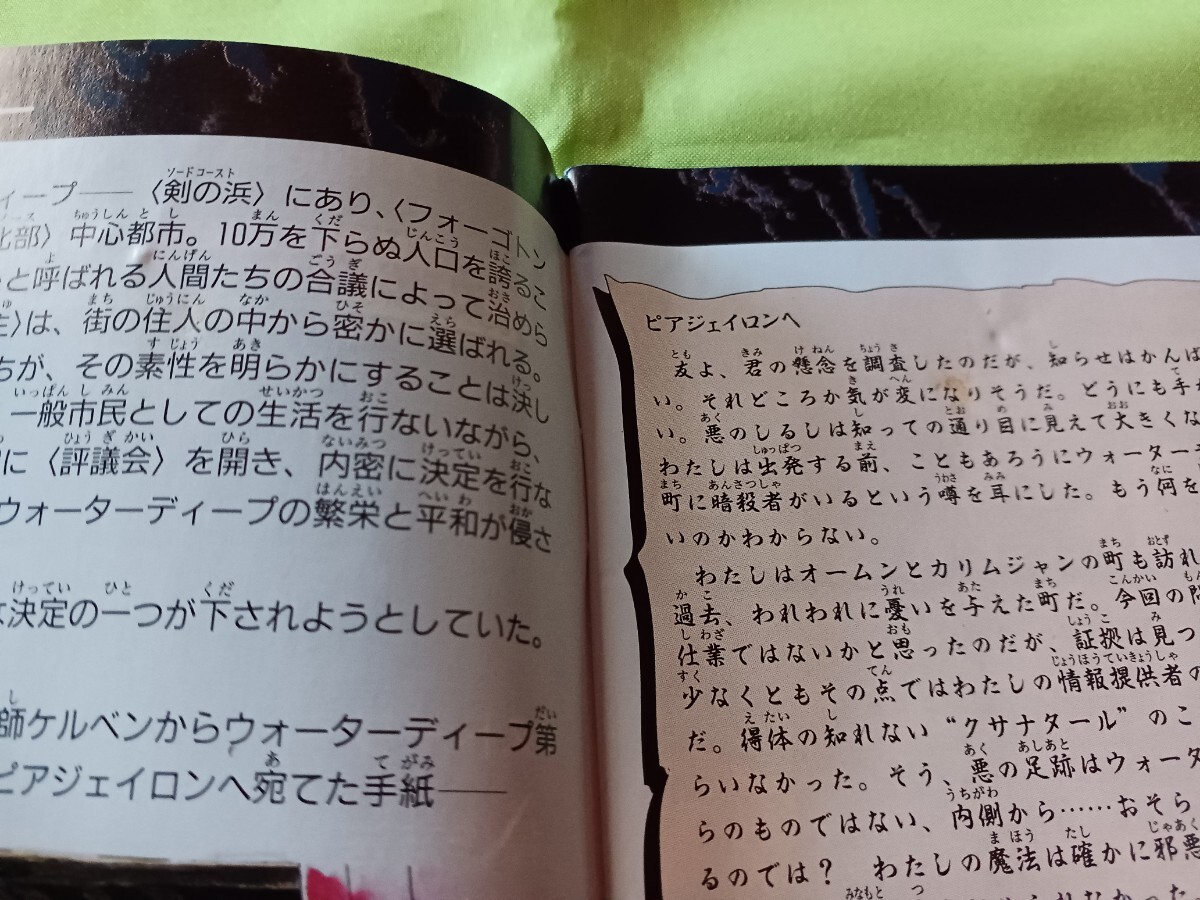 ィープ── 〈剣の浜〉にあり、〈フォーゴトン
北部〉中心都市。10万を下らぬ人口を誇るこ
と呼ばれる人間たちの合議によって治めら
〉は、街の住人の中から密かに選ばれる。
ちが、その素性を明らかにすることは決し
一般市民としての生活を行ないながら、
に〈評議会〉を開き、内密に決定を行な
ウォーターディープの繁栄と平和が侵さ
決定の一つが下されようとしていた。
師ケルベンからウォーターディープ第
ピアジェイロンへ宛てた手紙──
ピアジェイロンへ
友よ、君の懸念を調査したのだが、知らせはかんば
い。それどころか気が変になりそうだ。どうにも手
い。悪のしるしは知っての通り目に見えて大きくな
わたしは出発する前、こともあろうにウォーター
町に暗殺者がいるという噂を耳にした。もう何を
いのかわからない。
わたしはオームンとカリムジャンの町も訪れ
過去、われわれに憂いを与えた町だ。今回の問
仕業ではないかと思ったのだが、証拠は見つ
少なくともその点ではわたしの情報提供者の
だ。得体の知れない“クサナタール”のこ
らいなかった。そう、悪の足跡はウォータ
らのものではない、内側から……おそら
るのでは？ わたしの魔法は確かに邪悪